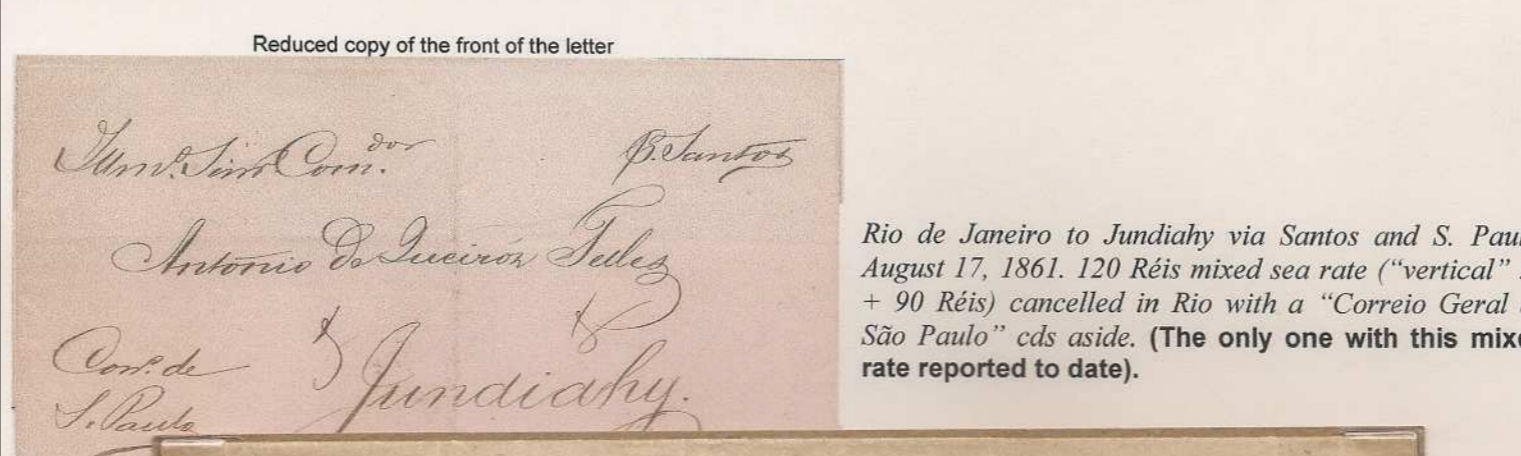 Reduced copy of the front of the letter
Illmo. Snr. Com.dor
P. Santos
Antonio De Queiróz Telles
Corro. de
S. Paulo
Jundiahy.
Rio de Janeiro to Jundiahy via Santos and S. Paul
August 17, 1861. 120 Réis mixed sea rate (“vertical”
+ 90 Réis) cancelled in Rio with a “Correio Geral
São Paulo” cds aside. (The only one with this mixe
rate reported to date).